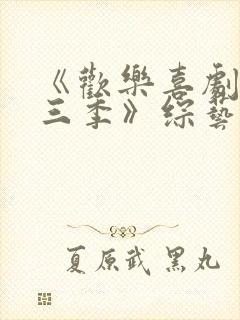 《歡樂喜劇
三季》綜藝
夏原武 黑丸